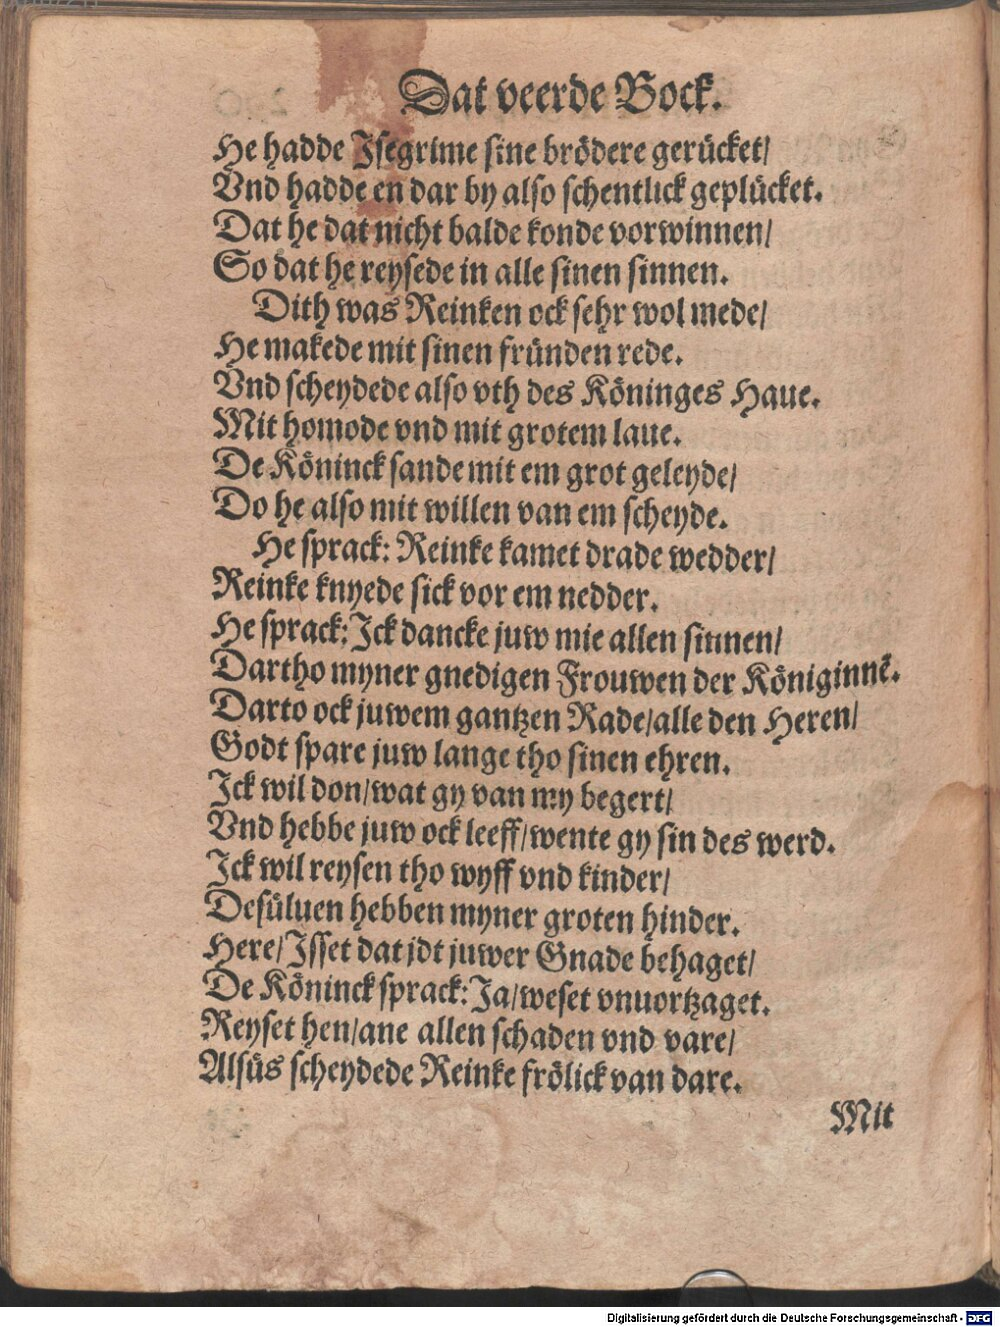 Dat veerde Bock.
He hadde Jsegrime sine brödere gerücket/
Vnd hadde en dar by also schentlick geplücket.
Dat he dat nicht balde konde vorwinnen/
So dat he reysede in alle sinen sinnen.
Dith was Reinken ock sehr wol mede/
He makede mit sinen fründen rede.
Vnd scheydede also vth des Köninges Haue.
Mit homode vnd mit grotem laue.
De Köninck sande mit em grot geleyde/
Do he also mit willen van em scheyde.
He sprack: Reinke kamet drade wedder/
Reinke knyede sick vor em nedder.
He sprack: Jck dancke juw mie allen sinnen/
Dartho myner gnedigen Frouwen der Königinnē.
Darto ock juwem gantzen Rade/alle den Heren/
Godt spare juw lange tho sinen ehren.
Jck wil don/wat gy van my begert/
Vnd hebbe juw ock leeff/wente gy sin des werd.
Jck wil reysen tho wyff vnd kinder/
Desüluen hebben myner groten hinder.
Here/Jsset dat jdt juwer Gnade behaget/
De Köninck sprack: Ja/weset vnuortzaget.
Reyset hen/ane allen schaden vnd vare/
Alsüs scheydede Reinke frölick van dare.
Mit
Digitalisierung gefördert durch die Deutsche Forschungsgemeinschaft - DFG